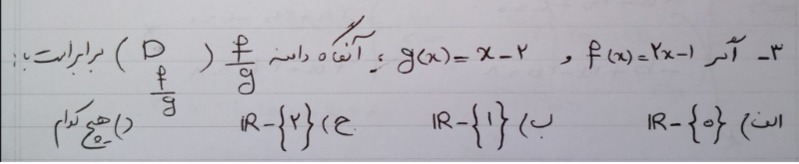 ۳- اگر f(x)=۲x-۱ و g(x)=x-۲ ; آنگاه دامنه f/g (D f/g) برابر است با:
الف) IR-{۰} ب) IR-{۱} ج) IR-{۲} د) هیچ کدام